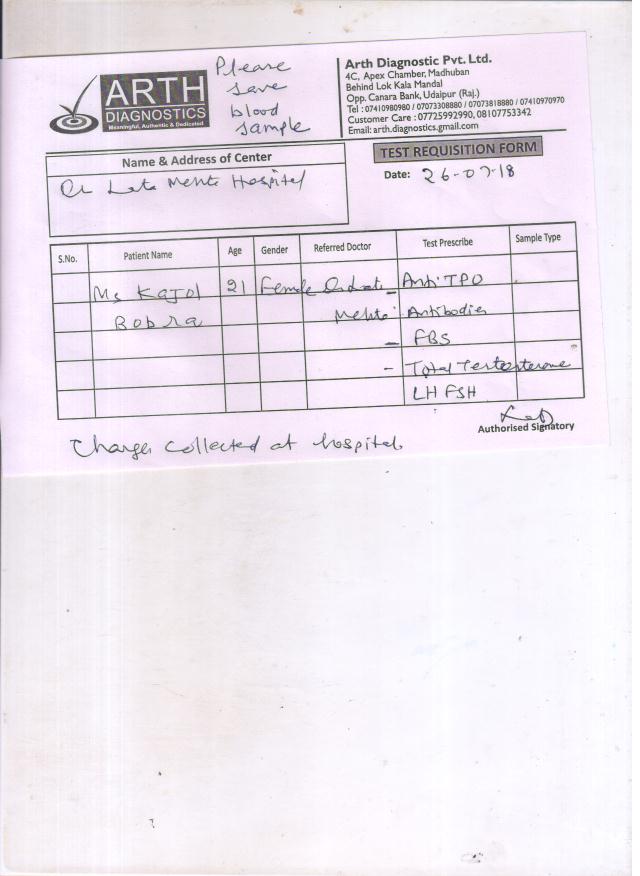 ARTH
DIAGNOSTICS
Meaningful, Authentic & Dedicated
Please
save
blood
sample
Arth Diagnostic Pvt. Ltd.
4C, Apex Chamber, Madhuban
Behind Lok Kala Mandal
Opp. Canara Bank, Udaipur (Raj.)
Tel : 07410980980 / 07073308880 / 07073818880 / 07410970970
Customer Care : 07725992990, 08107753342
Email: arth.diagnostics.gmail.com
Name & Address of Center
Mehta Hospital
TEST REQUISITION FORM
Date: 26-07-18
S.No. Patient Name Age Gender Referred Doctor Test Prescribe Sample Type
Ms Kajol 21 Female Anti TPO
Bobra Mehta Antibodies
- FBS
- Total Testosterone
LH FSH
Authorised Signatory
Charges collected at hospital.